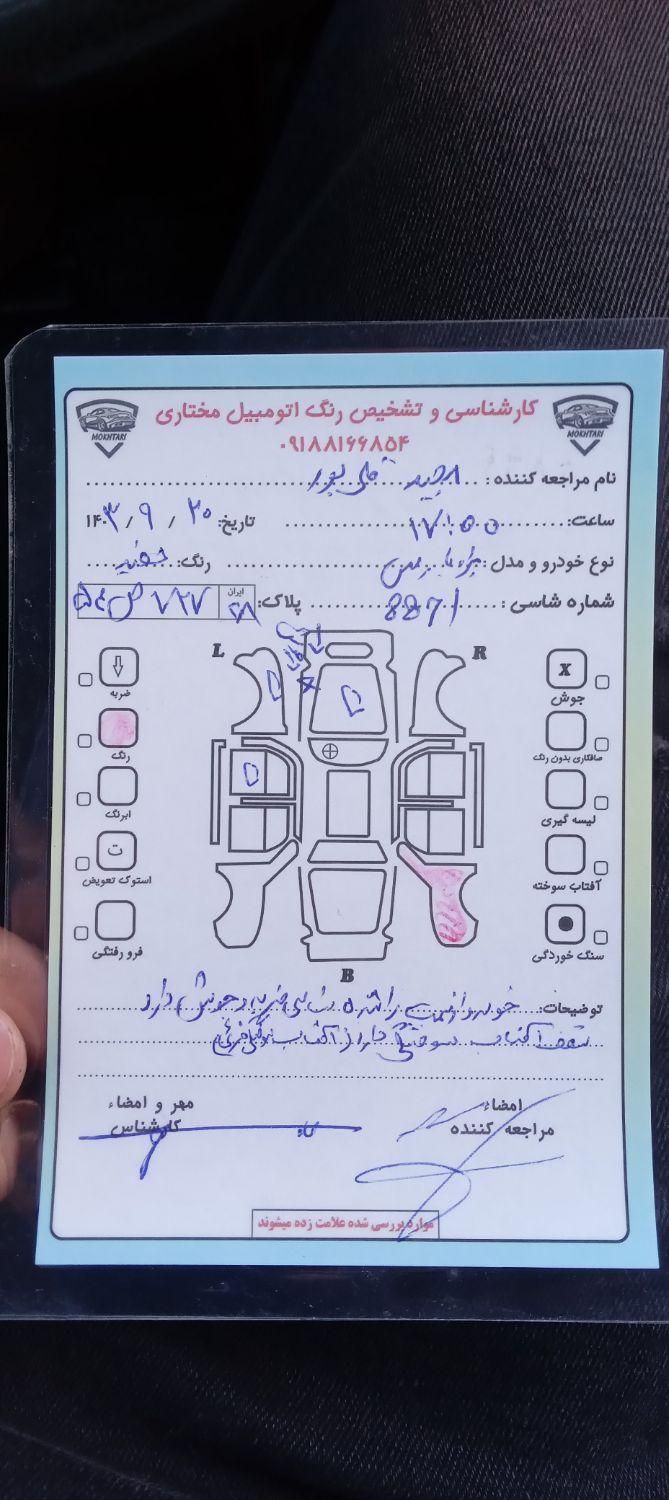 کارشناسی و تشخیص رنگ اتومبیل مختاری
MOKHTARI
MOKHTARI
۰۹۱۸۸۱۶۶۸۵۴
نام مراجعه کننده: قلی پور
ساعت: ۱۷:۵۵ تاریخ: ۱۴۰۳/۹/۲۰
نوع خودرو و مدل: رنگ: سفید
شماره شاسی: 8871 پلاک: ایران
L
R
X
جوش
صافکاری بدون رنگ
لیسه گیری
آفتاب سوخته
سنگ خوردگی
ضربه
رنگ
ابرنگ
ت
استوک تعویض
فرو رفتگی
B
توضیحات: خودرو از سمت راننده شاسی ضربه و جوش دارد
سقف آفتاب سوختگی دارد
امضاء
مراجعه کننده
مهر و امضاء
کارشناس
موارد بررسی شده علامت زده میشوند